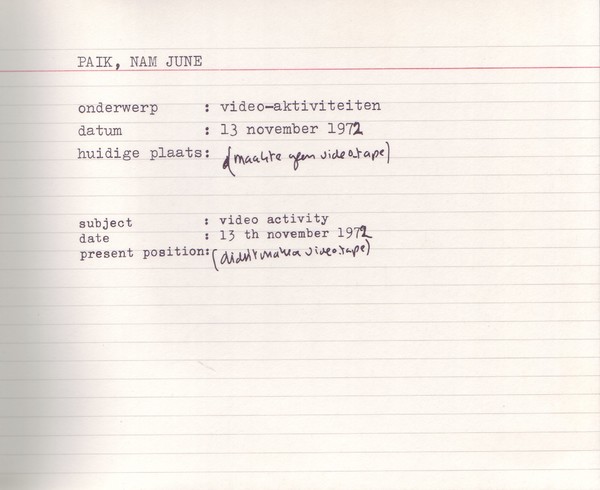 PAIK, NAM JUNE
onderwerp : video-aktiviteiten
datum : 13 november 1972
huidige plaats: (maakte geen videotape)
subject : video activity
date : 13 th november 1972
present position: (didn't make a videotape)